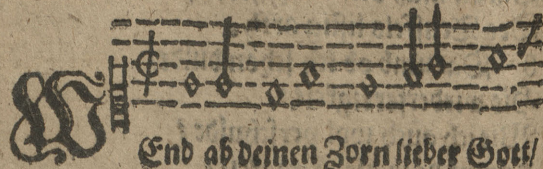 WEnd ab deinen Zorn lieber Gott/